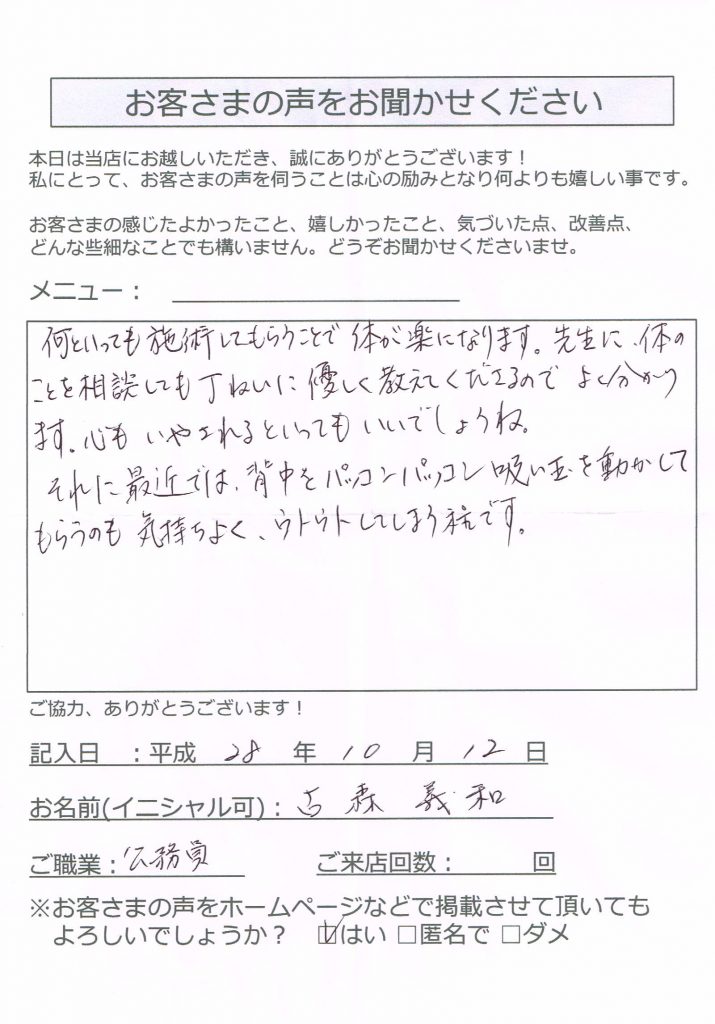 お客さまの声をお聞かせください
本日は当店にお越しいただき、誠にありがとうございます！
私にとって、お客さまの声を伺うことは心の励みとなり何よりも嬉しい事です。
お客さまの感じたよかったこと、嬉しかったこと、気づいた点、改善点、
どんな些細なことでも構いません。どうぞお聞かせくださいませ。
メニュー：
何といっても施術してもらうことで体が楽になります。先生に、体の
ことを相談しても丁ねいに優しく教えてくださるのでよく分かり
ます。心もいやされるといってもいいでしょうね。
それに最近では、背中をパッコンパッコン吸い玉を動かして
もらうのも気持ちよく、ウトウトしてしまう程です。
ご協力、ありがとうございます！
記入日　：平成 28 年 10 月 12 日
お名前(イニシャル可)：古森 義和
ご職業：公務員　ご来店回数：　回
※お客さまの声をホームページなどで掲載させて頂いても
よろしいでしょうか？　☑はい □匿名で □ダメ